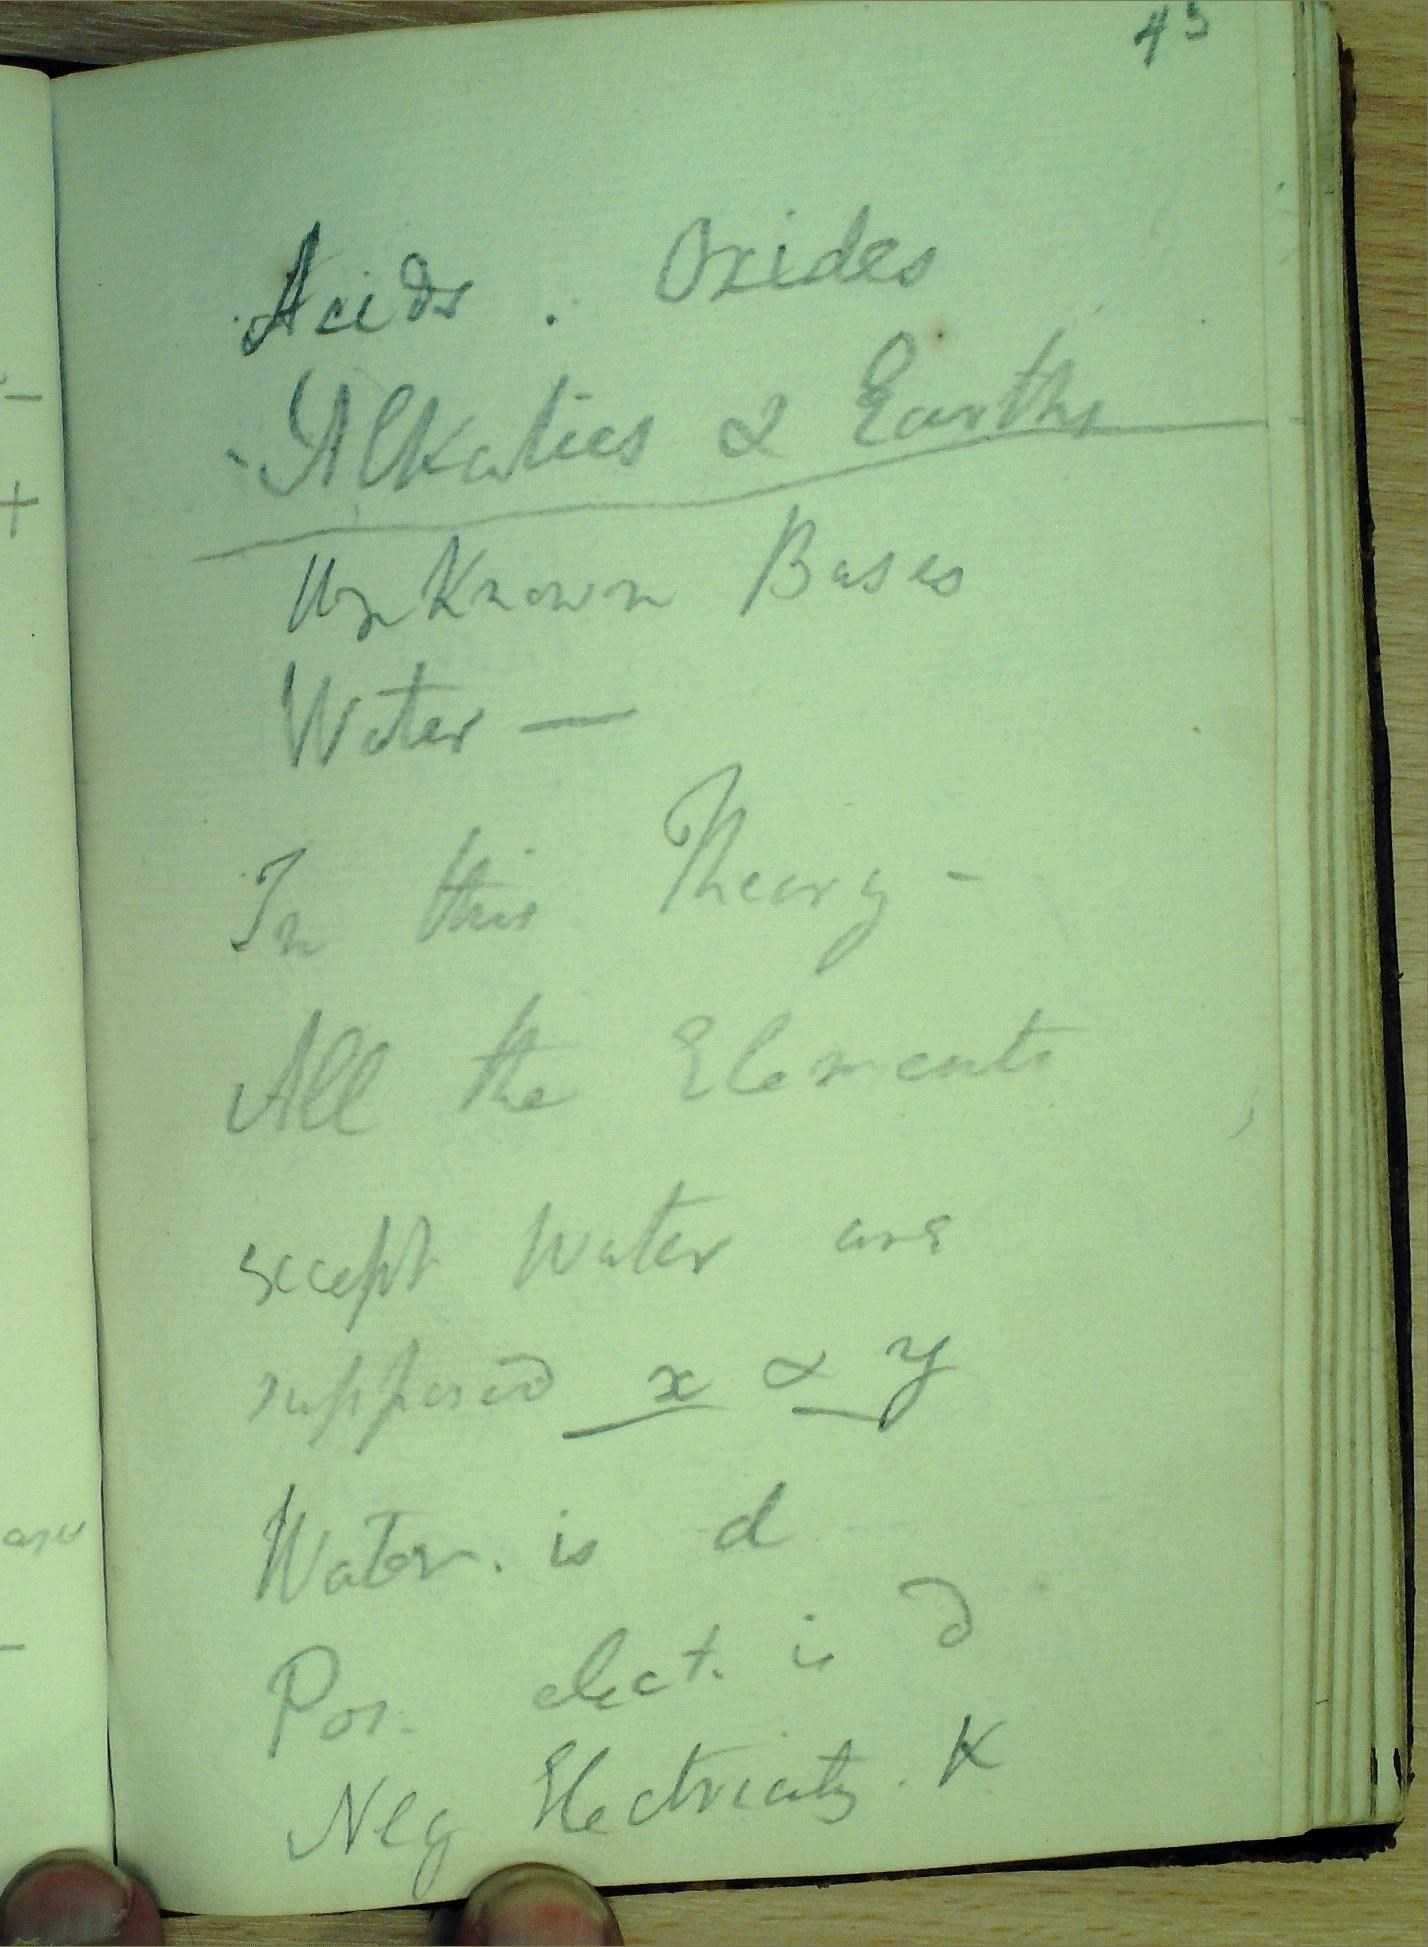 43
Acids. Oxides
Alkalies & Earths
Unknown Bases
Water —
In this Theory -
All the Elements
except Water are
supposed x & y
Water. is d
Pos. elect. is ∂
Neg Electricity. K